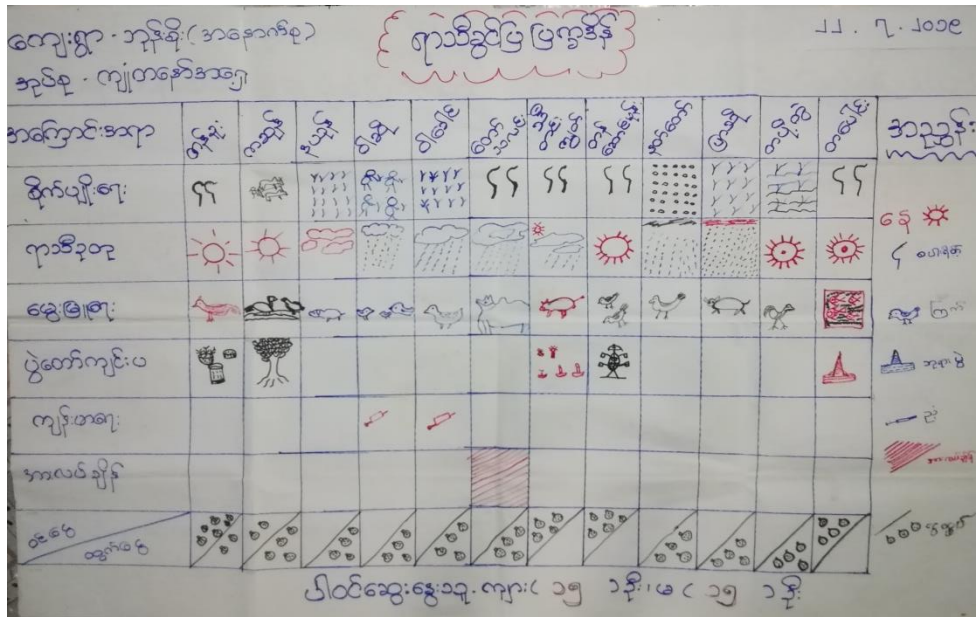 ကျေးရွာ - ဘုန်စိုး (အနောက်စု)
ရာသီခွင်ပြ ပြက္ခဒိန်
၂၂ . ၇ . ၂၀၁၉
အုပ်စု - ကျုံတနော်အရှေ့
အကြောင်းအရာ
တန်ခူး
ကဆုန်
နယုန်
ဝါဆို
ဝါခေါင်
တော်သလင်း
သီတင်းကျွတ်
တန်ဆောင်မုန်း
နတ်တော်
ပြာသို
တပို့တွဲ
တပေါင်း
အညွှန်း
စိုက်ပျိုးရေး
နေ
စပါးရိတ်
ရာသီဥတု
မွေးမြူရေး
ကြက်
ပွဲတော်ကျင်းပ
ဘုရားပွဲ
ကျန်းမာရေး
အားလပ်ချိန်
ဝင်ငွေ
ထွက်ငွေ
ပါဝင်ဆွေးနွေးသူ - ကျား ( ၁၅ ) ဦး ၊ မ ( ၁၅ ) ဦး